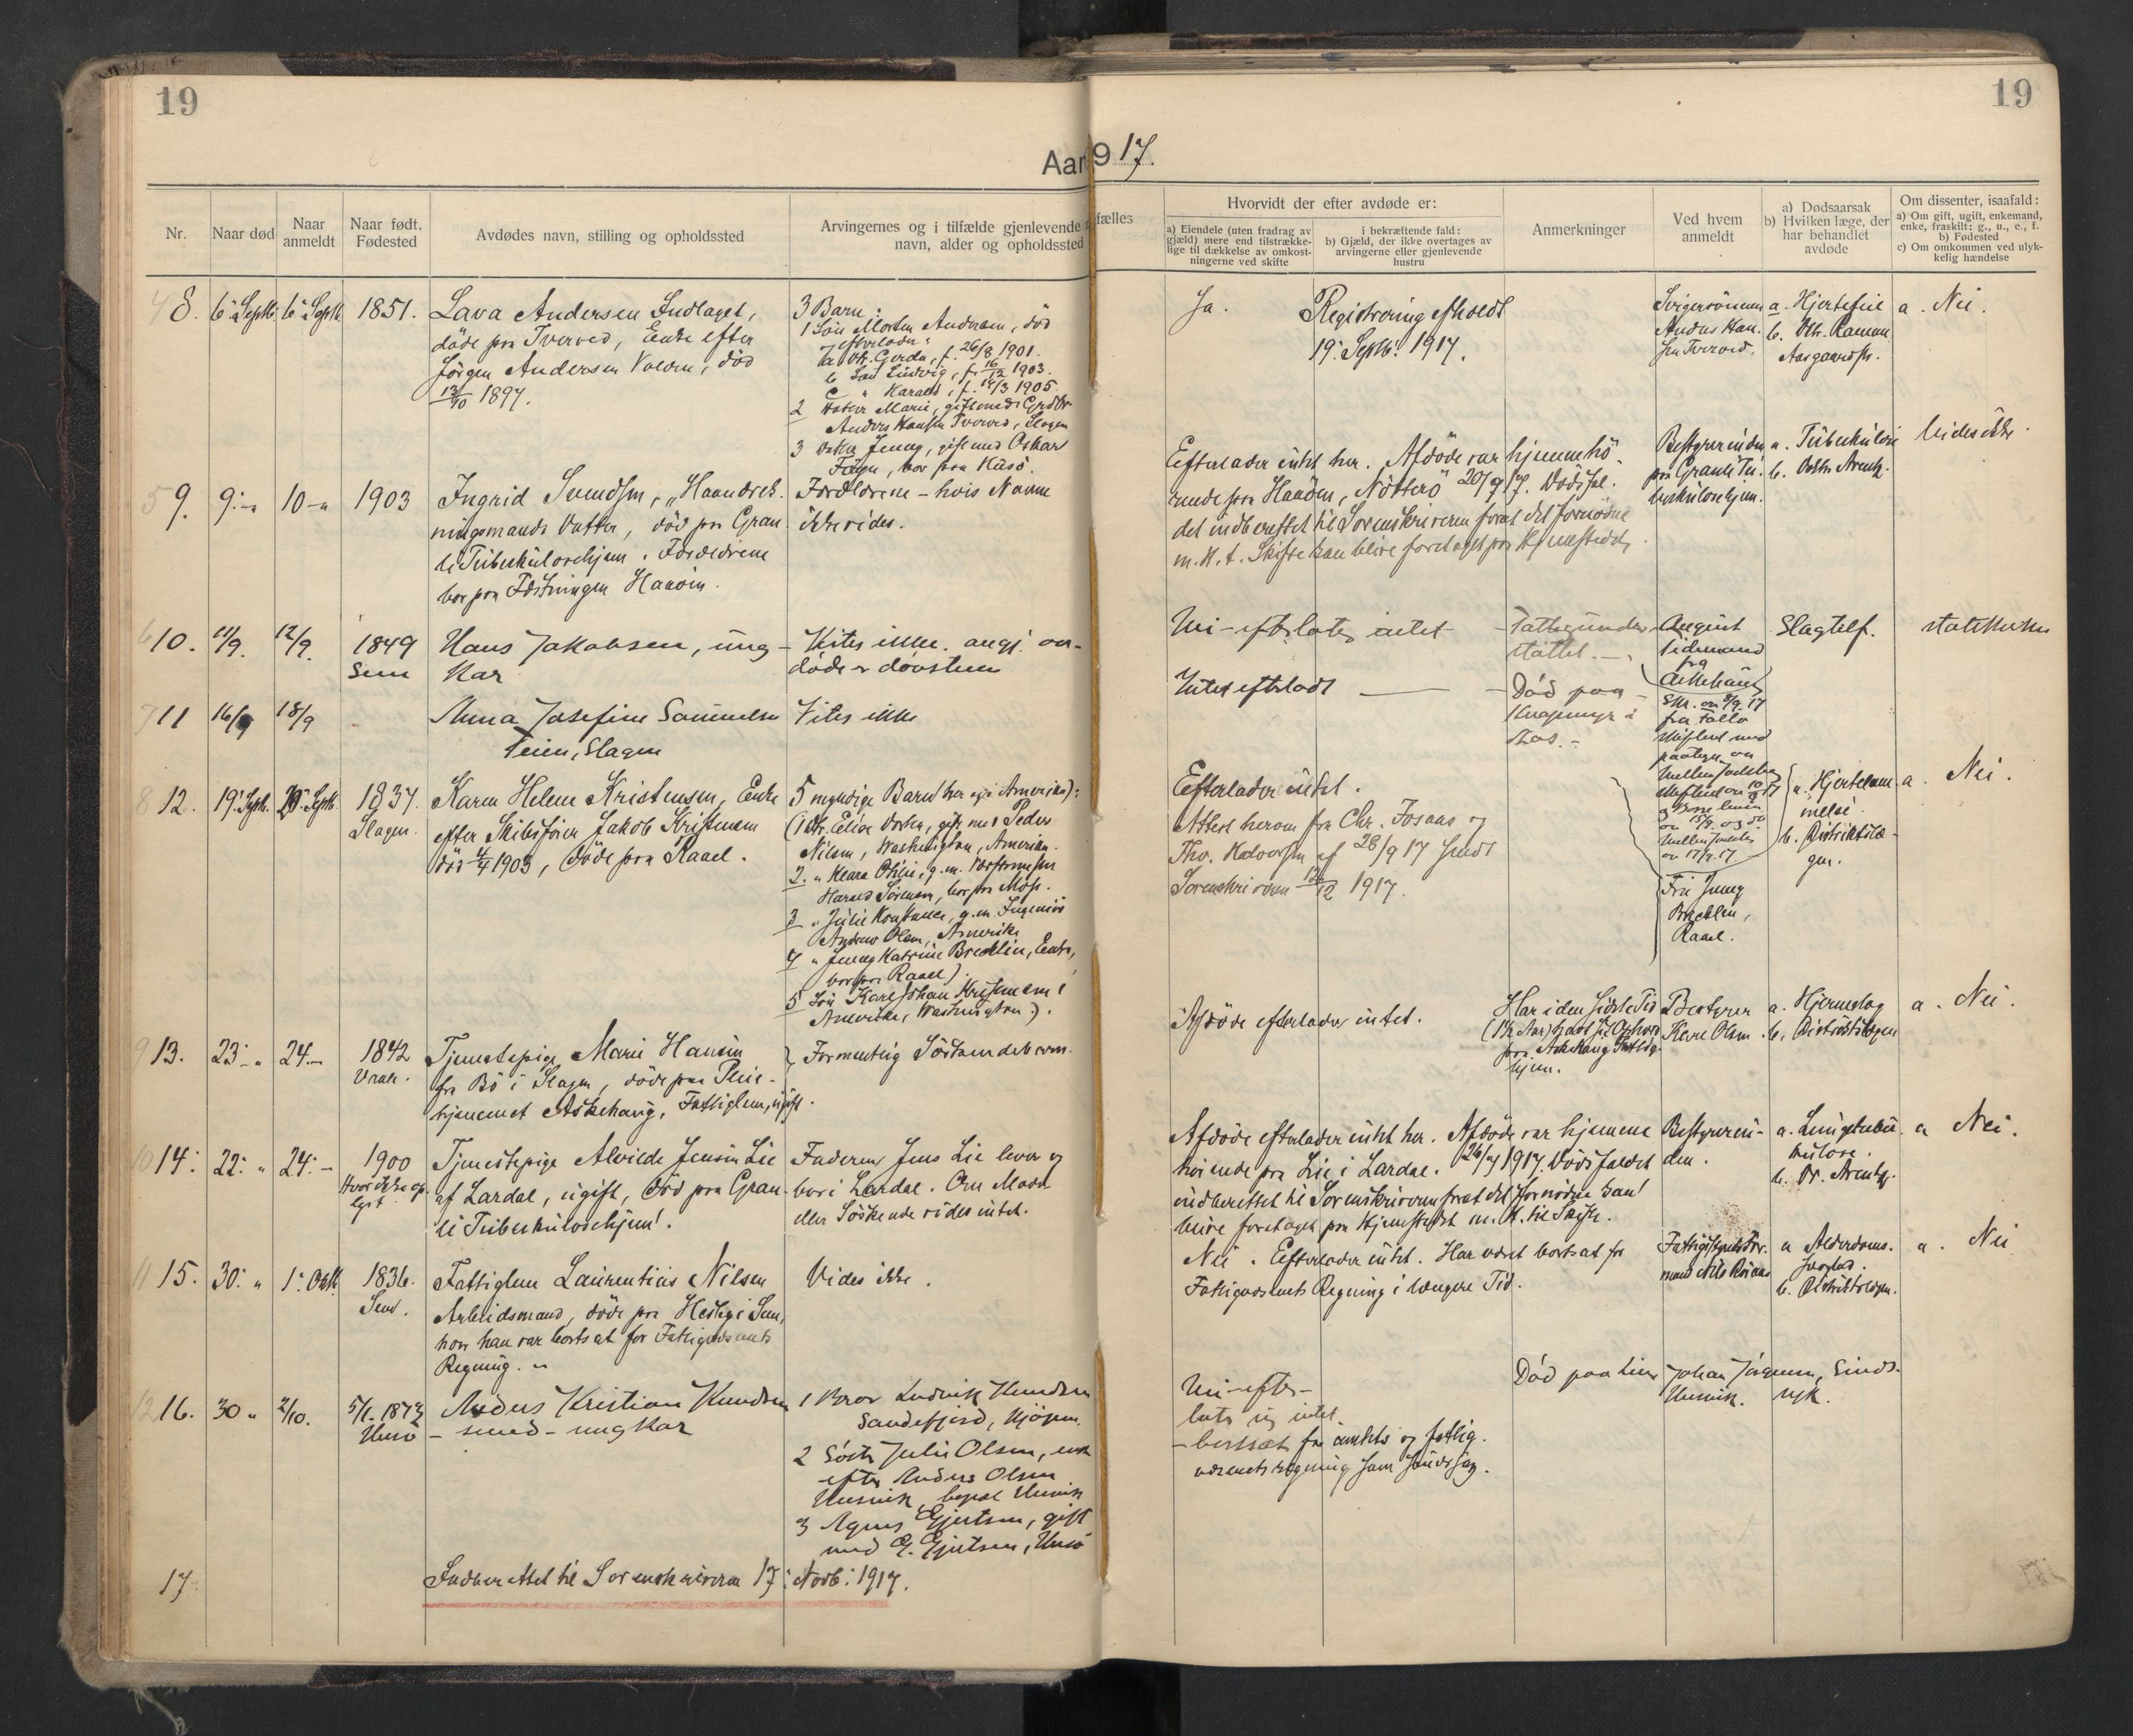 19
19
Aar 1917.
Nr.
Naar død
Naar anmeldt
Naar født. Fødested
Avdødes navn, stilling og opholdssted
Arvingernes og i tilfælde gjenlevende
navn, alder og opholdssted
Hvorvidt der efter avdøde er:
a) Eiendele (uten fradrag av gjæld) mere end tilstrækkelige til dækkelse av omkostningerne ved skifte
i bekræftende fald:
b) Gjæld, der ikke overtages av arvingerne eller gjenlevende hustru
Anmerkninger
Ved hvem anmeldt
a) Dødsaarsak
b) Hvilken læge, der har behandlet avdøde
Om dissenter, isaafald:
a) Om gift, ugift, enkemand, enke, fraskilt: g., u., e., f.
b) Fødested
c) Om omkommen ved ulykkelig hændelse
8. 6 Septb. 6 Septb. 1851. Lava Andersen Indlaget,
døde paa Tverved, Enke efter
Jørgen Andersen Valøen, død
13/10 1897.
3 Barn:
1 Søn Morten Andersen, død
efterlader:
a Dtr. Gerda, f. 26/8 1901.
b Søn Ludvig, f. 16/12 1903.
c " Harald, f. 14/3 1905.
2 Datter Marie, gift med Grdbr.
Anders Hansen Tverved, Slagen
3 Datter Jenny, gift med Oskar
bor paa Husø.
Ja.
Registrering afholdt
19. Septb. 1917.
Svigersønnen
Anders Han-
sen Tverved.
a. Hjertefeil
b. Dtr. Ramm
Aasgaardstr.
a. Nei.
9. 9 - " 10 - " 1903 Ingrid Svendsen, Haandværk-
ningsmands Datter, død paa Gran-
li Tuberkulosehjem. Forældrene
bor paa Fæstningen Haaøen.
Forældrene - hvis Navne
ikke vides.
Efterlader intet her. Afdøde var hjemmehø-
rende paa Haaøen, Nøtterø 20/9 17. Dødsfal-
det indberettet til Sorenskriveren forat det fornødne
m. H. t. Skifte kan blive foretaget paa Hjemstedet.
Bestyrerinden
paa Granli Tu-
berkulosehjem.
a. Tuberkulose
b. Doktor Arentz.
Vides ikke.
10. 11/9. 12/9. 1849
Sem
Hans Jakobsen, ung-
kar
Vites ikke. angj. av-
døde er døvstum
Nei - efterlater intet
Fattigunder-
støttet.
August
Tidemand
fra
Askehaug
Slagtilf.
statskirken
11 16/9 18/9
Anna Josefine Samuelsen
Teien, Slagen
Vites ikke
Intet efterladt
Død paa
i
Aas.
12. 19. Septb. 20. Septb. 1837.
Slagen.
Karen Helene Kristensen, Enke
efter Skibsfører Jakob Kristensen
død 1903, døde paa Raael.
5 myndige Barn her og i Amerika):
(1 Dtr. Elise Dortea, gift med Peder
Nilsen, Washington, Amerika.
2. " Klara Otilie, g. m.
Harald Sørensen, bor paa Moss.
3 " Julie Konstance, g. m. Ingeniør
Andrew Olsen, Amerika
4 " Jenny Katrine Brechlin, Enke,
bor paa Raael).
5 Søn Karl Johan Kristensen i
Amerika, Washington).
Efterlader intet.
Attest herom fra Chr. Fosaas og
Tho. Halvorsen af 28/9 17 sendt
Sorenskriveren 12/12 1917.
Fru Jenny
Brechlin,
Raael.
a. Hjertelam-
melse
b. Distriktslæ-
gen.
a. Nei.
13. 23 - " 24 - 1842
Tjenestepige Marie Hansen
fra Bø i Slagen, døde paa Pleie-
hjemmet Askehaug, Fattiglem, ugift.
Formentlig Søskendebarn.
Afdøde efterlader intet.
Har i den sidste Tid
(1½ Aar) havt sit Ophold
paa Askehaug Fattig-
hjem.
Bestyrer
Karl Olsen.
a. Hjerneslag
b. Distriktslægen
a. Nei.
14. 22. " 24. - 1900
Hvor ikke op-
lyst.
Tjenestepige Alvilde Jensen Lie
af Lardal, ugift, død paa Gran-
li Tuberkulosehjem.
Faderen Jens Lie lever og
bor i Lardal. Om Moder
eller Søskende vides intet.
Afdøde efterlader intet her. Afdøde var hjemme-
hørende paa Lie i Lardal. 26/9 1917. Dødsfaldet
indberettet til Sorenskriveren forat det fornødne kan
blive foretaget paa Hjemstedet m. H. til Skifte.
Bestyrerin-
den.
a. Lungetuber-
kulose.
b. Dr. Arentz.
a Nei.
15. 30. " 1. Oktb. 1836.
Sem.
Fattiglem Laurentius Nilsen
Arbeidsmand, døde paa i Sem,
hvor han var bortsat for Fattigvæsenets
Regning.
Vides ikke.
Nei. Efterlader intet. Har været bortsat for
Fattigvæsenets Regning i længere Tid.
Fattigstyrets For-
mand Nils
a Alderdoms-
svaghed.
b. Distriktslægen.
a. Nei
16. 30 " 2/10. 5/1. 1873
Husø
Anders Kristian Knudsen
- smed - ungkar
1 Bror Ludvik Knudsen
Sandefjord,
2 Søster Julie Olsen, enke
efter Anders Olsen
Husvik, bopæl Husvik
3 Agnes Ejertsen, gift
med E. Ejertsen, Husø
Nei - efter-
later sig intet.
- bortsat for amtets og fattig-
væsenets regning som sindssyg.
Død paa Lier
Johan Jørgensen,
Husvik.
Sinds-
syk.
17
Indberettet til Sorenskriveren 17. Novb. 1917.